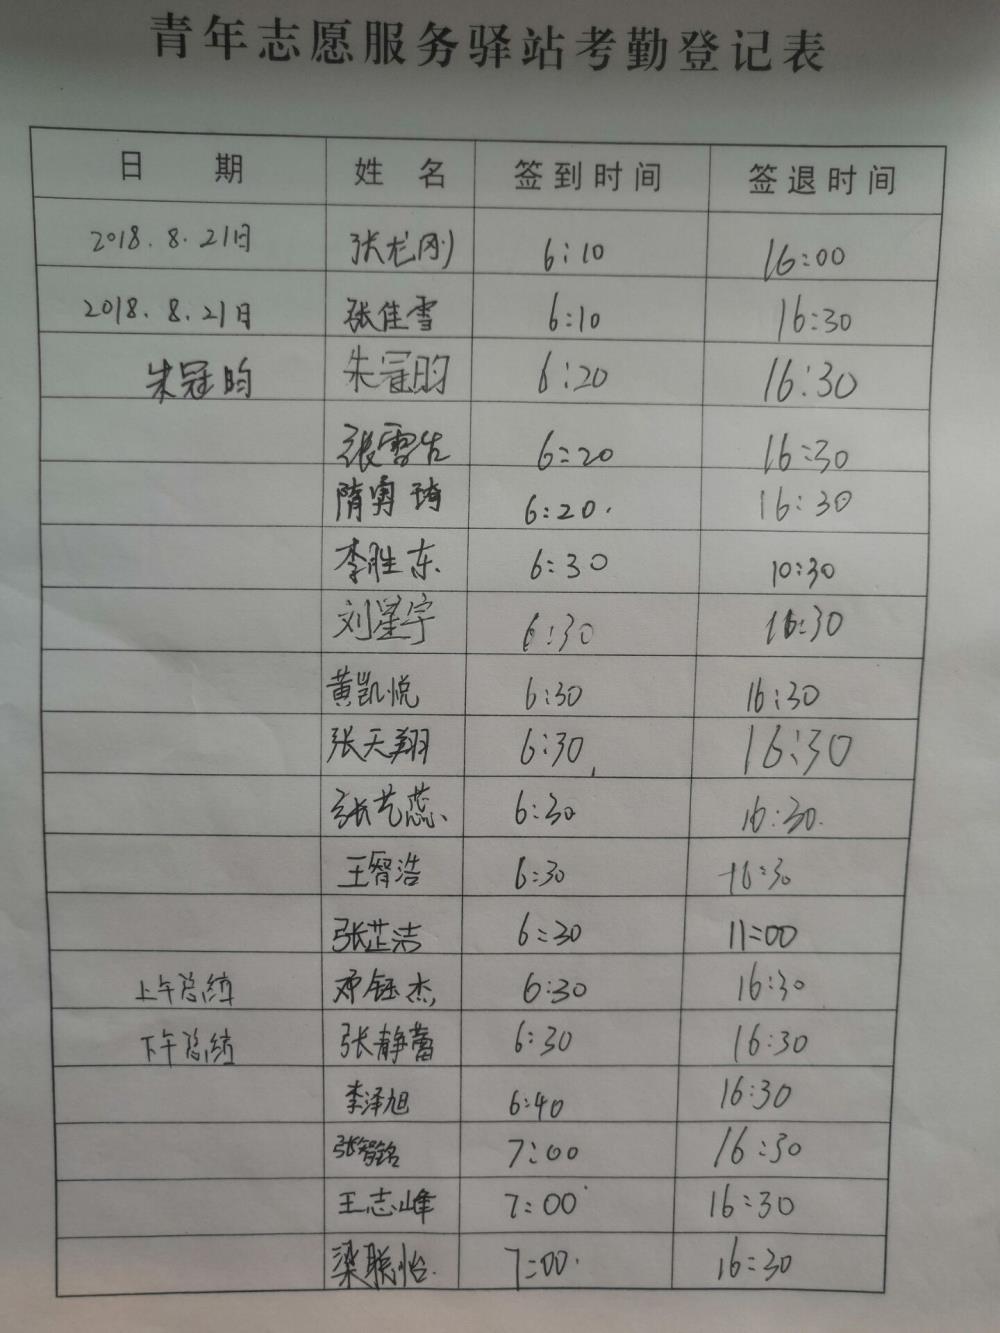 青年志愿服务驿站考勤登记表
日 期 姓 名 签到时间 签退时间
2018.8.21日 张龙刚 6:10 16:00
2018.8.21日 张佳雪 6:10 16:30
朱冠昀 朱冠昀 6:20 16:30
张雪生 6:20 16:30
隋 琦 6:20. 16:30
李胜东 6:30 10:30
刘星宇 6:30 16:30
黄凯悦 6:30 16:30
张天翔 6:30 16:30
张艺蕊 6:30 16:30.
王智浩 6:30 16:30
张芷洁 6:30 11:00
上午总结 邓钰杰 6:30 16:30
下午总结 张静蕾 6:30 16:30
李泽旭 6:40 16:30
张智铭 7:00 16:30
王志峰 7:00 16:30
梁聪怡. 7:00. 16:30